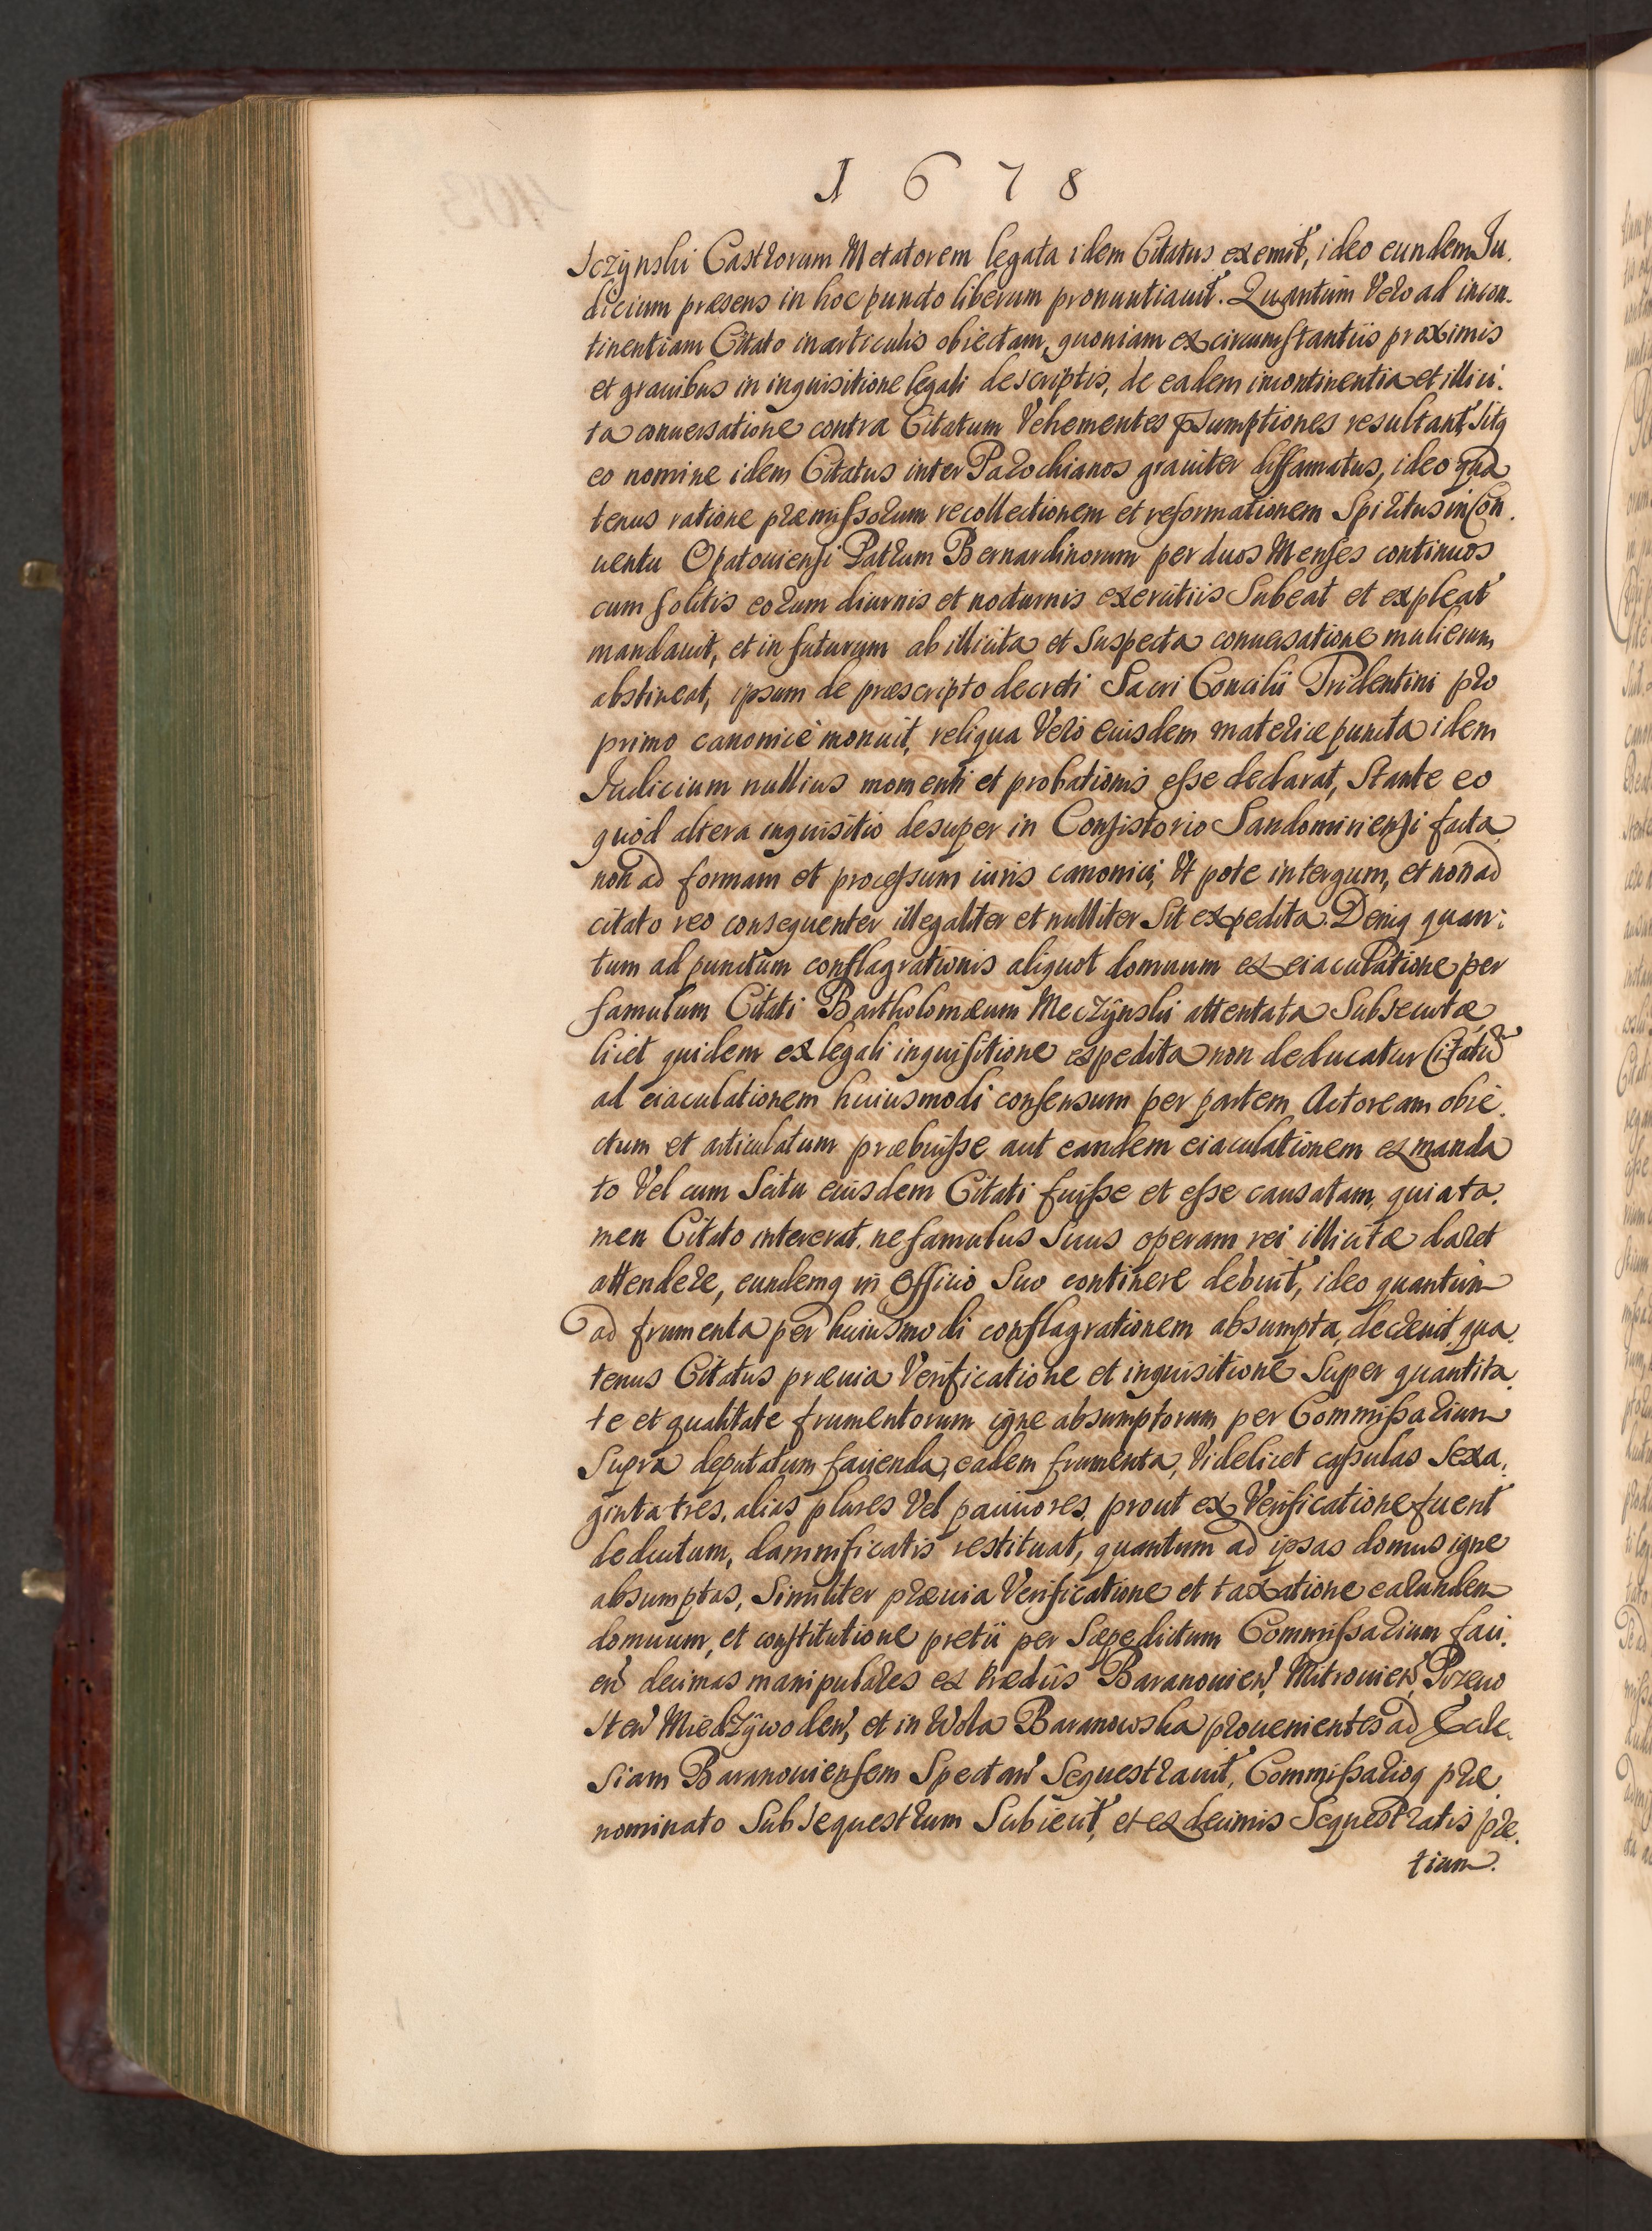 1678
sczÿnski Castrorum Metatorem legata idem Citatus exemit, ideo eundem Iu.
dicium præsens in hoc puncto liberum pronuntiauit. Quantum Vero ad incon.
tinentiam Citato in articulis obiectam, quoniam ex circumstantiis proximis
et grauibus in inquisitione legali descriptis, de eadem incontinentia et illici.
ta conuersatione contra Citatum Vehementes p̄sumptiones resultant, sitq
eo nomine idem Citatus inter Parochianos grauiter diffamatus, ideo qua
tenus ratione præmissorum recollectionem et reformationem Spiritus in Con.
uentu Opatouiensi Patrum Bernardinorum per duos Menses continuos
cum solitis eorum diurnis et nocturnis exercitiis Subeat et expleat
mandauit, et in futurum ab illicita et Suspecta conuersatione mulierum
abstineat, ipsum de præscripto decreti Sacri Concilii Tridentini pro
primo canonicè monuit, reliqua Verò eiusdem materiæ puncta idem
Iudicium nullius momenti et probationis esse declarat, Stante eo
quòd altera inquisitio desuper in Consistorio Sandomiriensi facta
non ad formam et processum iuris canonici, Vt pote in tergum, et non ad
citato reo consequenter illegaliter et nulliter Sit expedita. Deniq quan:
tum ad punctum conflagrationis aliquot domuum ex eiaculatione per
famulum Citati Bartholomæum Meczÿnski attentata Subsecutæ
licet quidem ex legali inquisitione expedita non deducatur Citatũ
ad eiaculationem huiusmodi consensum per partem Actoream obie.
ctum et articulatum præbuisse aut eandem eiaculationem ex manda
to Vel cum Scitu eiusdem Citati fuisse et esse causatam, quia ta.
men Citato intererat, ne famulus Suus operam rei illicitæ daret
attendere, eundemq in Officio Suo continere debuit, ideo quantum
ad frumenta per huiusmodi conflagrationem absumpta, decreuit qua.
tenus Citatus præuia Verificatione et inquisitione Super quantita.
te et qualitate frumentorum igne absumptorum per Commissarium
Supra deputatum facienda, eadem frumenta, Videlicet capsulas Sexa.
ginta tres, alias plures Vel pauciores, prout ex Verificatione fuerit
deductum, damnificatis restituat, quantum ad ipsas domus igne
absumptas, Similiter præuia Verificatione et taxatione earundem
domuum, et constitutione pretii per Sæpedictum Commissarium faci.
eñ decimas manipulares ex prædiis Baranouieñ, Mitrouieñ, Przeuo
steñ Miedzÿwodeñ, et in Wola Baranowska prouenientes ad Eccle.
siam Baranouiensem Spectañ Sequestrauit, Commissarioq præ
nominato Sub Sequestrum Subiecit, et ex decimis Sequestratis pre.
tium.